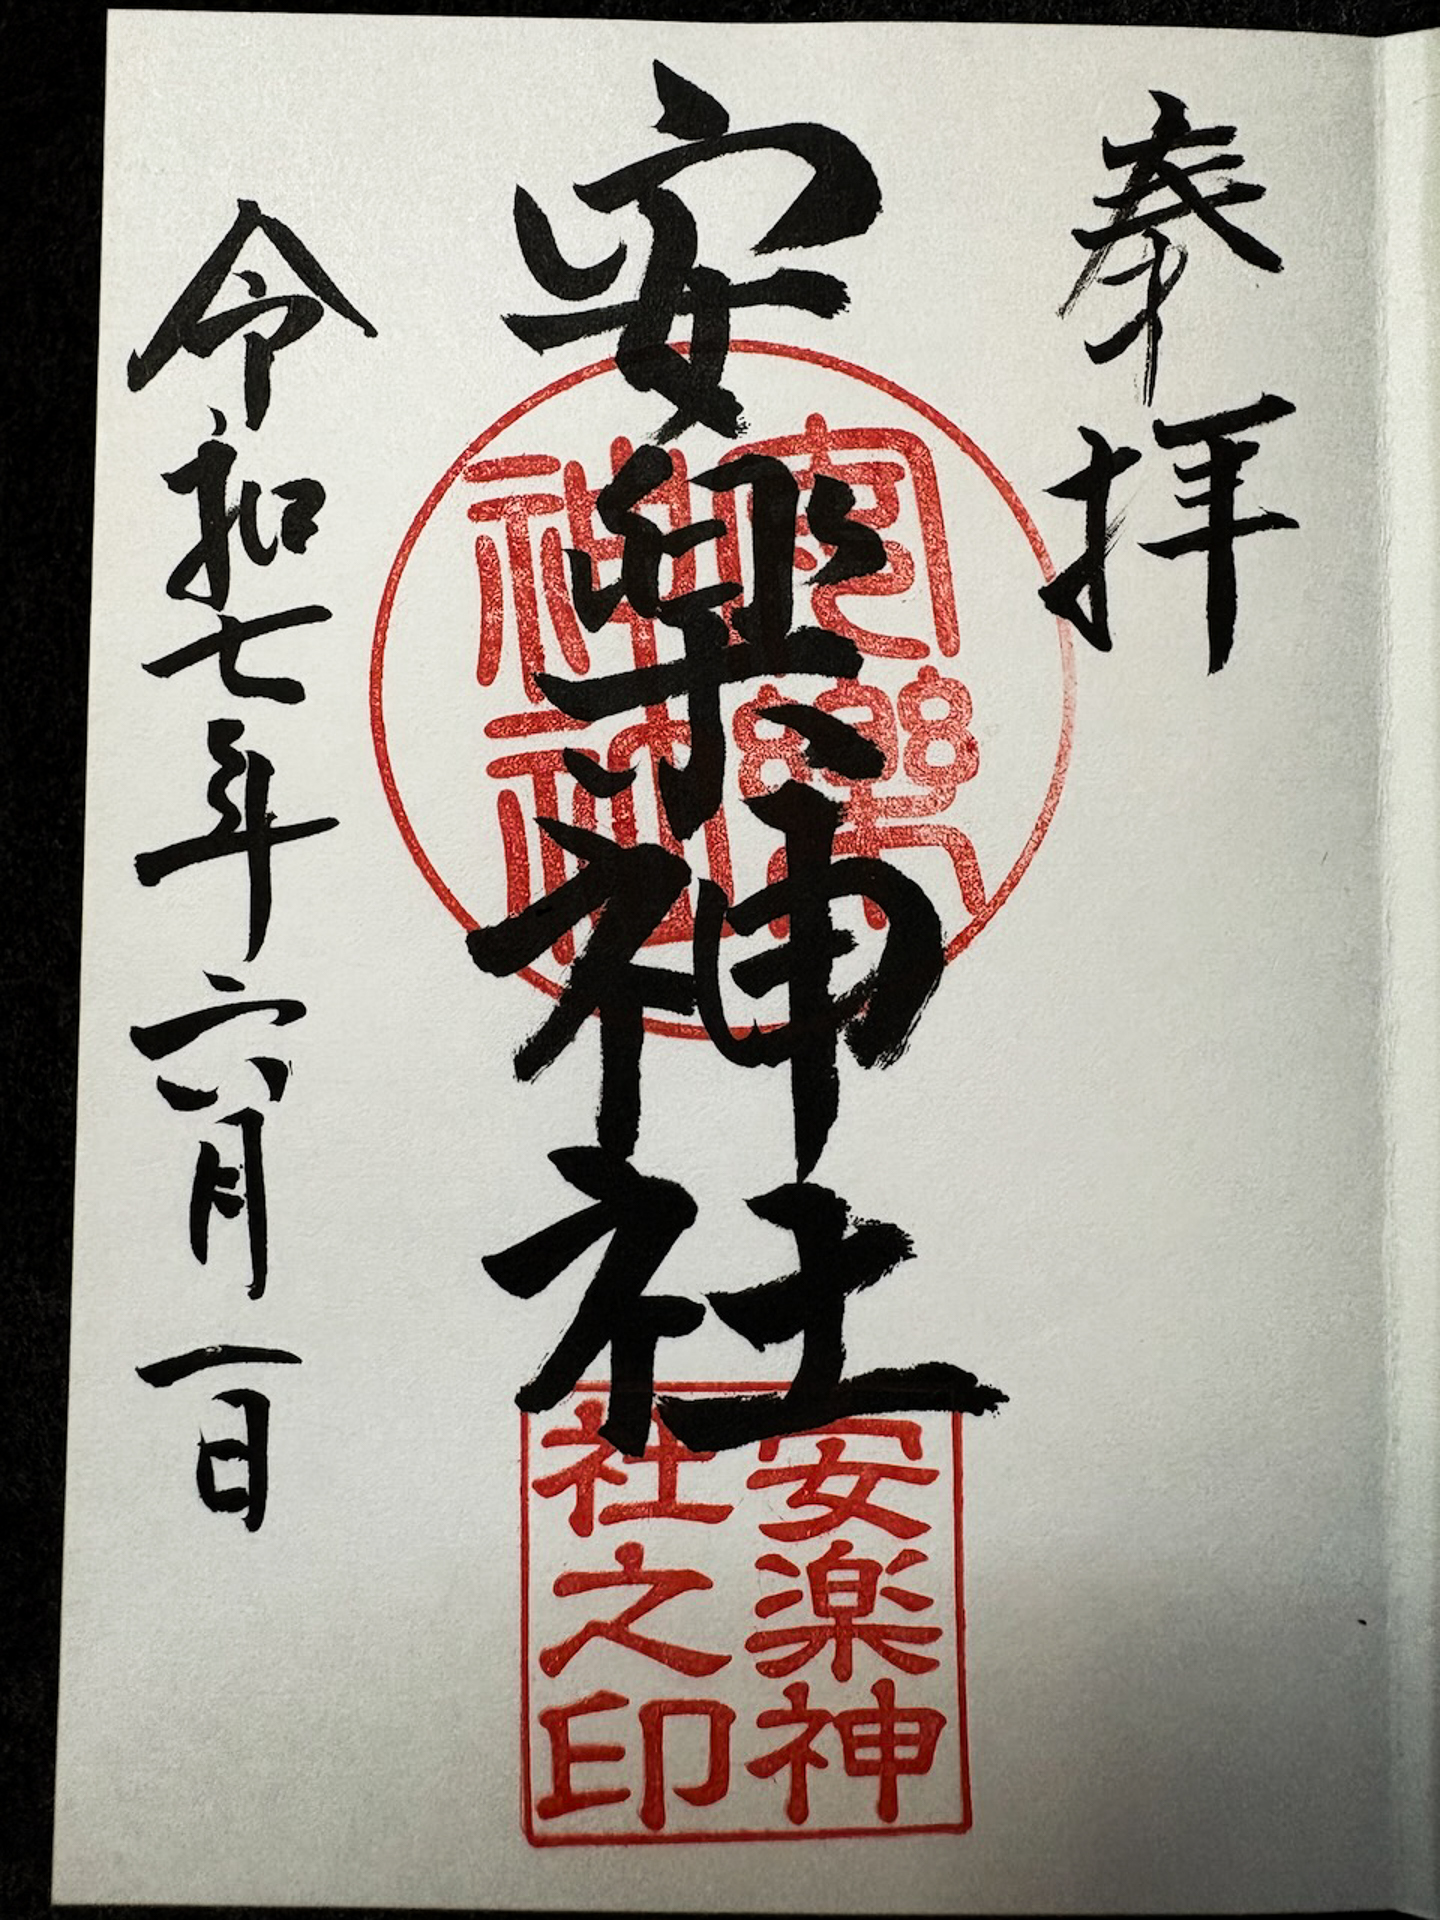 奉拝
安楽神社
安楽
神社
安楽神
社之印
令和七年六月一日